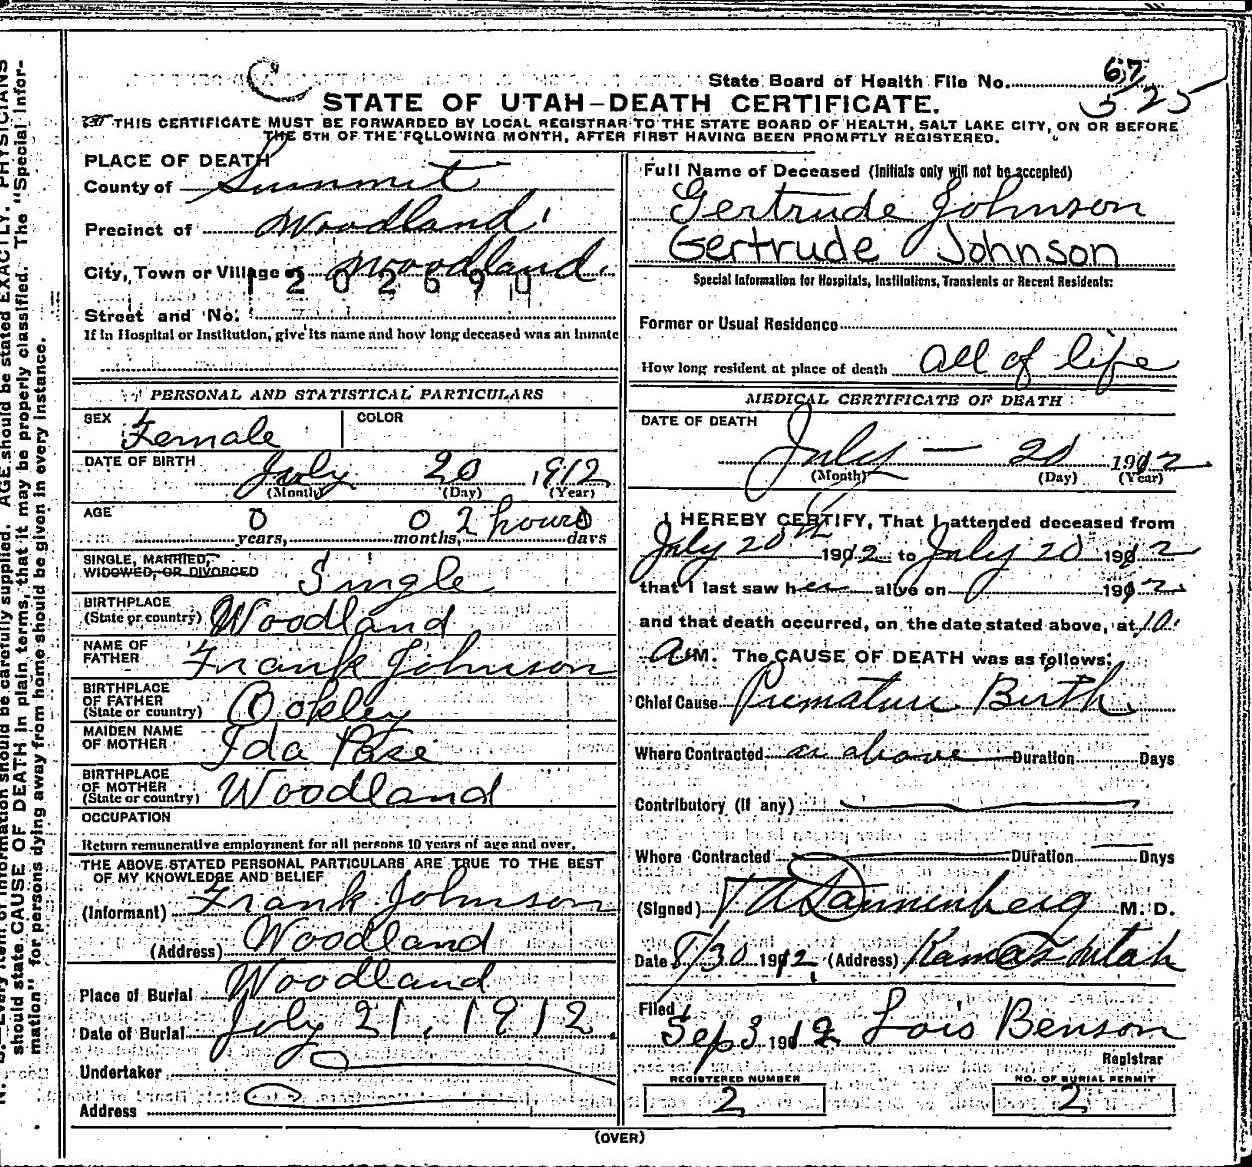 State Board of Health File No. 67
525
STATE OF UTAH—DEATH CERTIFICATE.
THIS CERTIFICATE MUST BE FORWARDED BY LOCAL REGISTRAR TO THE STATE BOARD OF HEALTH, SALT LAKE CITY, ON OR BEFORE
THE 5TH OF THE FOLLOWING MONTH, AFTER FIRST HAVING BEEN PROMPTLY REGISTERED.
PLACE OF DEATH
County of Summit
Precinct of Woodland
City, Town or Village of Woodland
Street and No.
If in Hospital or Institution, give its name and how long deceased was an inmate
PERSONAL AND STATISTICAL PARTICULARS
SEX Female COLOR
DATE OF BIRTH July 20 1912
(Month) (Day) (Year)
AGE 0 years, 0 months, 2 hours days
SINGLE, MARRIED,
WIDOWED, OR DIVORCED Single
BIRTHPLACE
(State or country) Woodland
NAME OF
FATHER Frank Johnson
BIRTHPLACE
OF FATHER
(State or country) Oakley
MAIDEN NAME
OF MOTHER Ida
BIRTHPLACE
OF MOTHER
(State or country) Woodland
OCCUPATION
Return remunerative employment for all persons 10 years of age and over.
THE ABOVE STATED PERSONAL PARTICULARS ARE TRUE TO THE BEST
OF MY KNOWLEDGE AND BELIEF
(Informant) Frank Johnson
(Address) Woodland
Place of Burial Woodland
Date of Burial July 21, 1912.
Undertaker
Address
Full Name of Deceased (Initials only will not be accepted)
Gertrude Johnson
Gertrude Johnson
Special Information for Hospitals, Institutions, Transients or Recent Residents:
Former or Usual Residence
How long resident at place of death all of life
MEDICAL CERTIFICATE OF DEATH
DATE OF DEATH
July — 20 1912
(Month) (Day) (Year)
I HEREBY CERTIFY, That I attended deceased from
July 20th 1912 to July 20 1912
that I last saw her alive on 1912
and that death occurred, on the date stated above, at 10
A.M. The CAUSE OF DEATH was as follows:
Chief Cause Premature Birth
Where Contracted as above Duration Days
Contributory (If any)
Where Contracted Duration Days
(Signed) Dannenberg M. D.
Date 8/30 1912 (Address) Kamas Utah
Filed
Sep 3 1912 Lois Benson
Registrar
REGISTERED NUMBER
2
NO. OF BURIAL PERMIT
2
(OVER)
N. B. Every item of information should be carefully supplied. AGE should be stated EXACTLY. PHYSICIANS
should state CAUSE OF DEATH in plain terms, that it may be properly classified. The "Special Infor-
mation" for persons dying away from home should be given in every instance.